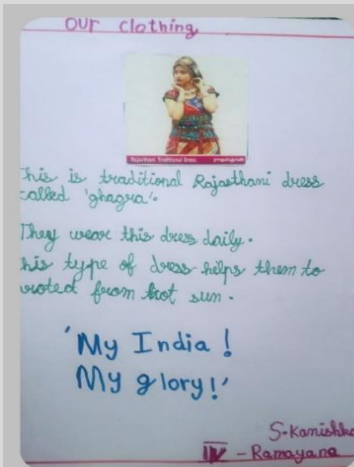 our clothing
Rajasthani Traditional Dress
his is traditional Rajasthani dress
called 'ghagra'.
They wear this dress daily.
his type of dress helps them to
roted from hot sun.
'My India!
My glory!'
S-Kanishka
IV - Ramayana